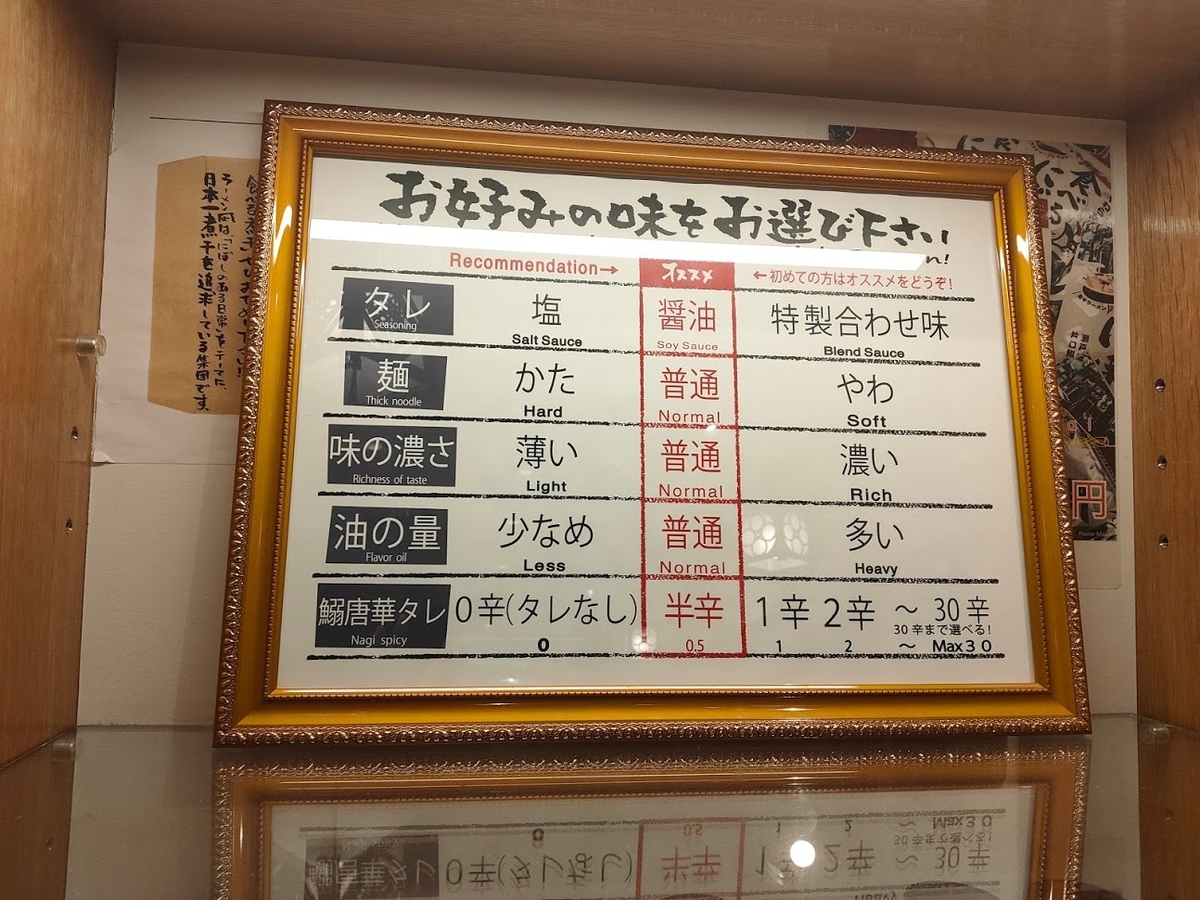 お好み の味を お選び下さい
ん!
Recommendation→ オススメ ←初めての方はオススメをどうぞ!
タレ 塩 醤油 特製合わせ味
Seasoning Salt Sauce Soy Sauce Blend Sauce
麺 かた 普通 やわ
Thick noodle Hard Normal Soft
味の濃さ 薄い 普通 濃い
Richness of taste Light Normal Rich
油の量 少なめ 普通 多い
Flavor oil Less Normal Heavy
鰯唐華タレ 0辛(タレなし) 半辛 1辛 2辛 〜 30辛
30辛まで選べる!
Nagi spicy 0 0.5 1 2 〜 Max30
ラーメン凪は、「にぼしのある日常」をテーマに、
日本一煮干を追求している集団です。
円